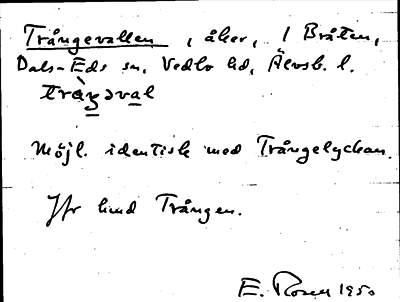 Trångevallen, åker, / Bråten,
Dals-Eds sn, Vedbo hd, Älvsb. l.
tràŋəval
Möjl. identisk med Trångelyckan.
Jfr hmd Trången.
E. Rosen 1950